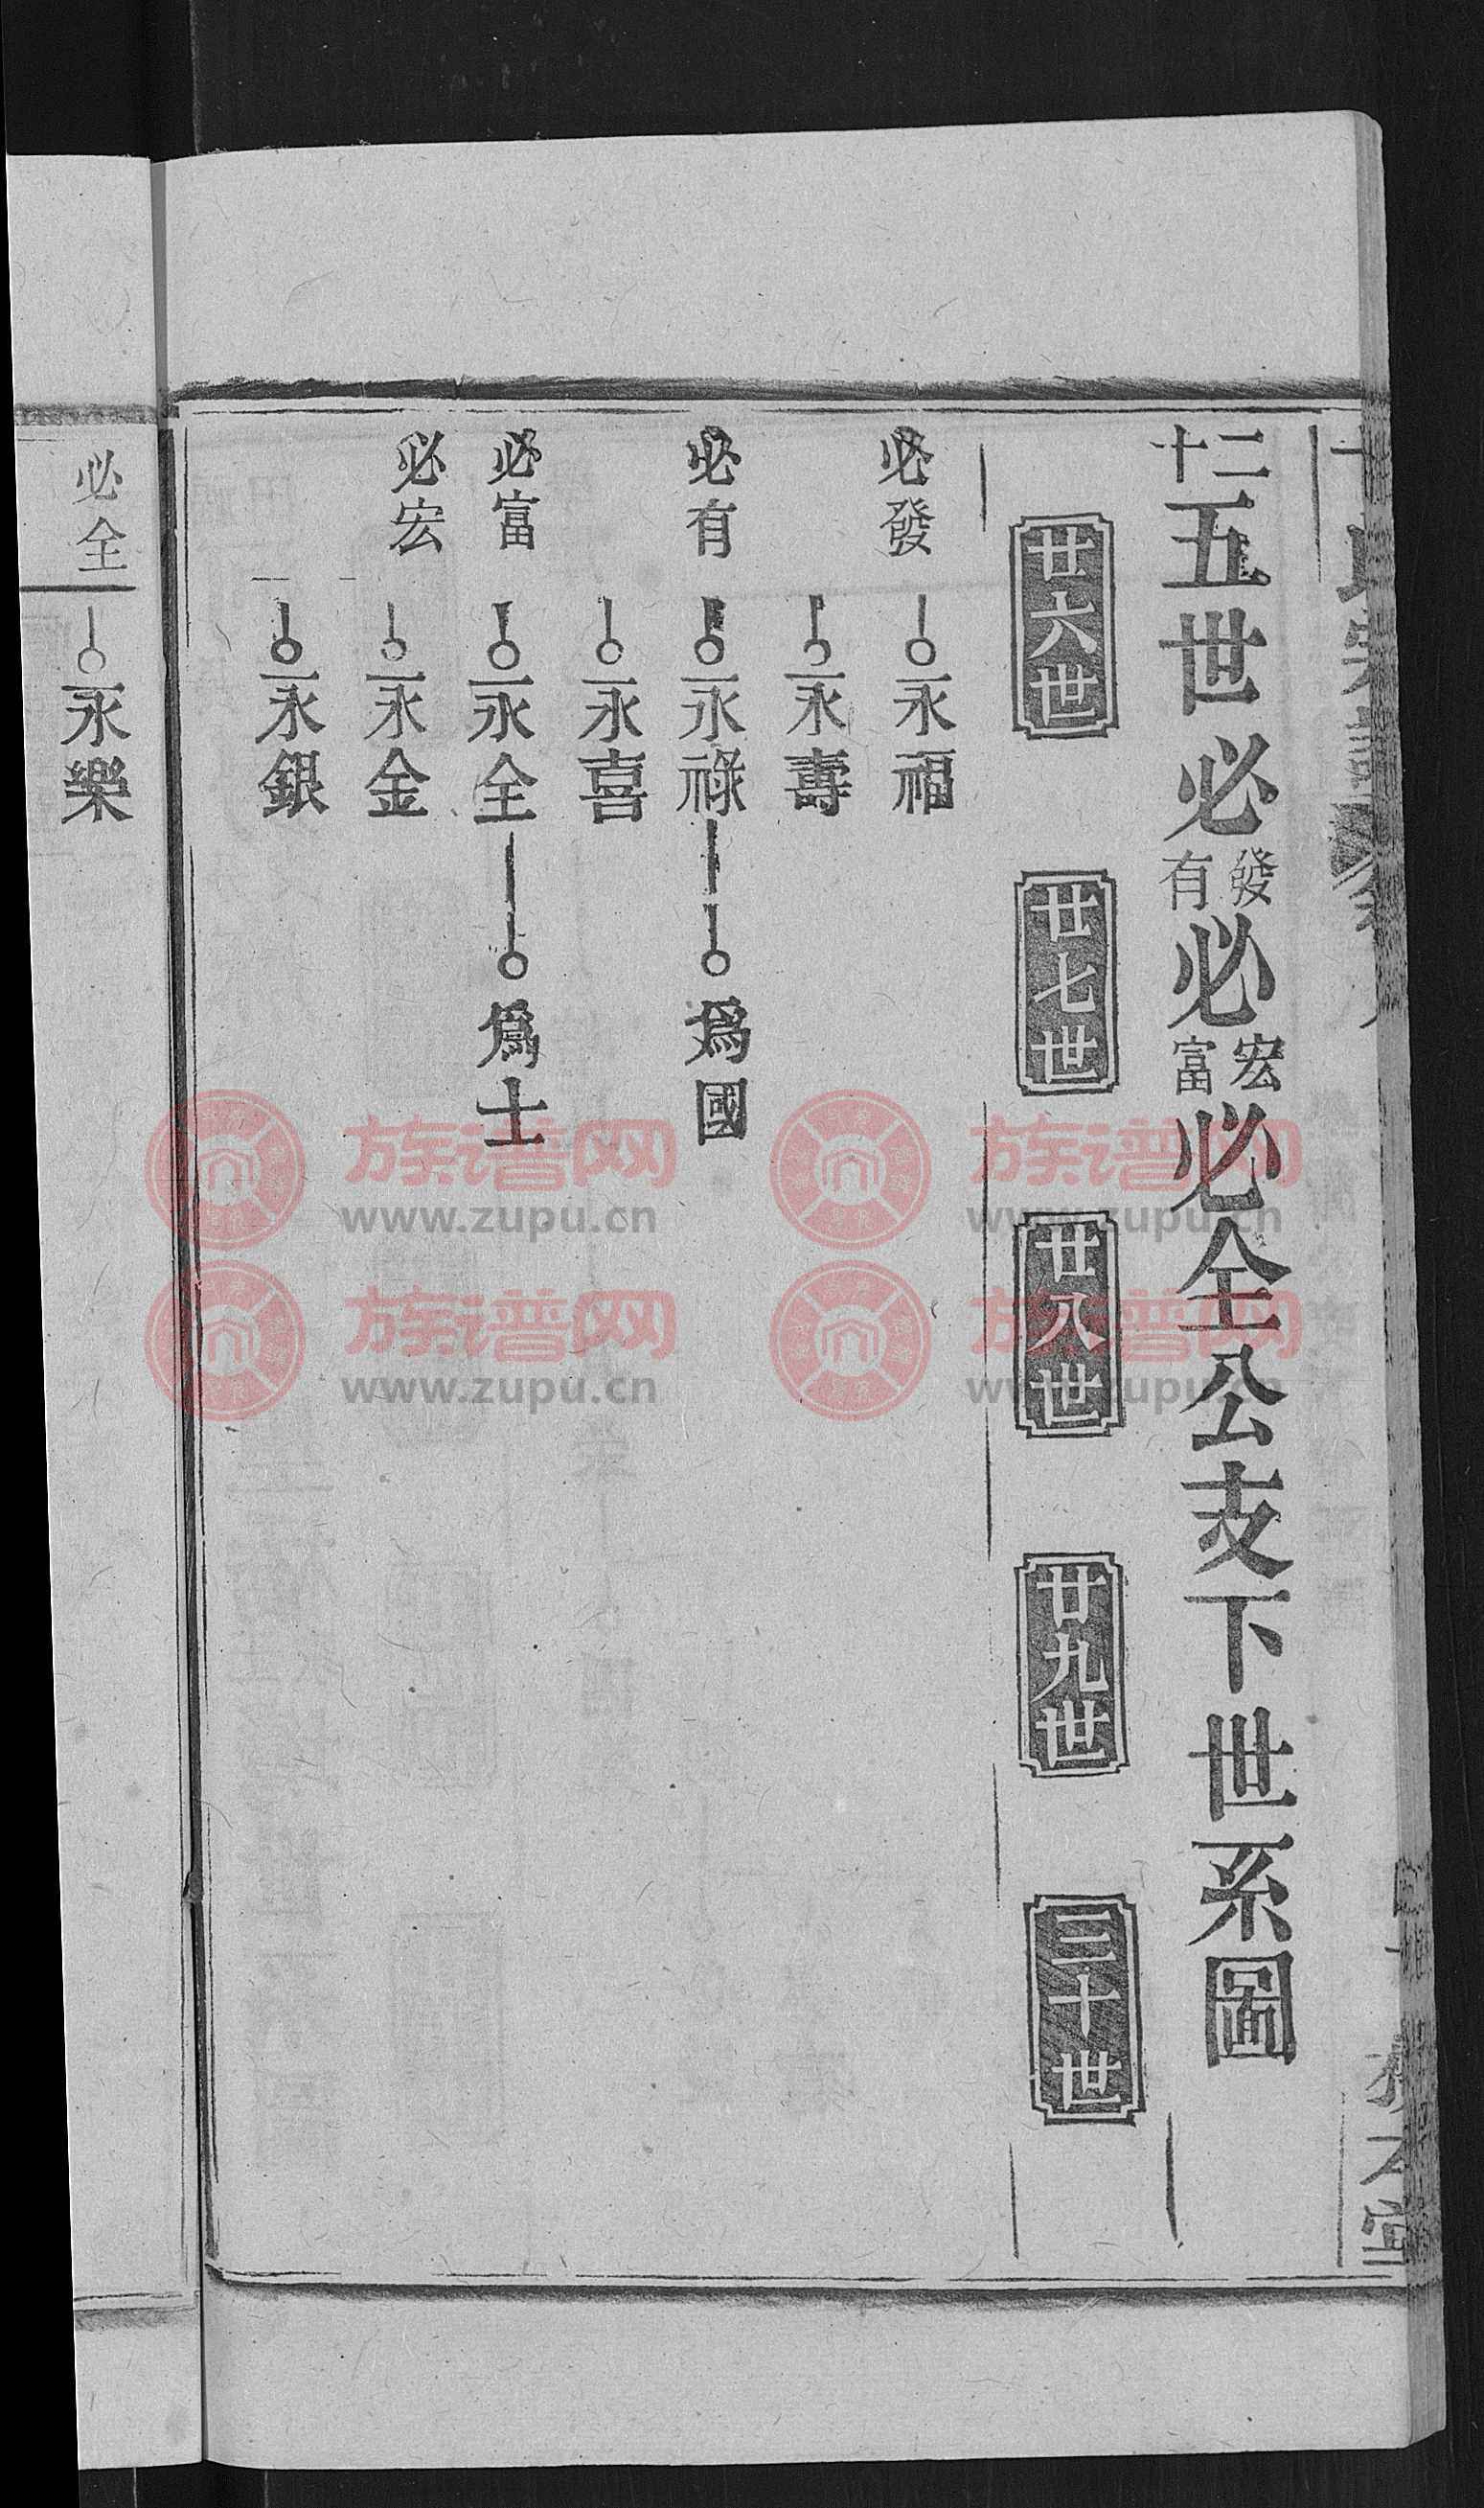 二十五世必發有必宏富必全公支下世系圖
廿六世
廿七世
廿八世
廿九世
三十世
必發
永福
永壽
必有
永祿
爲國
永喜
必富
永全
爲士
必宏
永金
永銀
必全
永樂
族谱网
www.zupu.cn
族谱网
www.zupu.cn
族谱网
www.zupu.cn
族谱网
www.zupu.cn